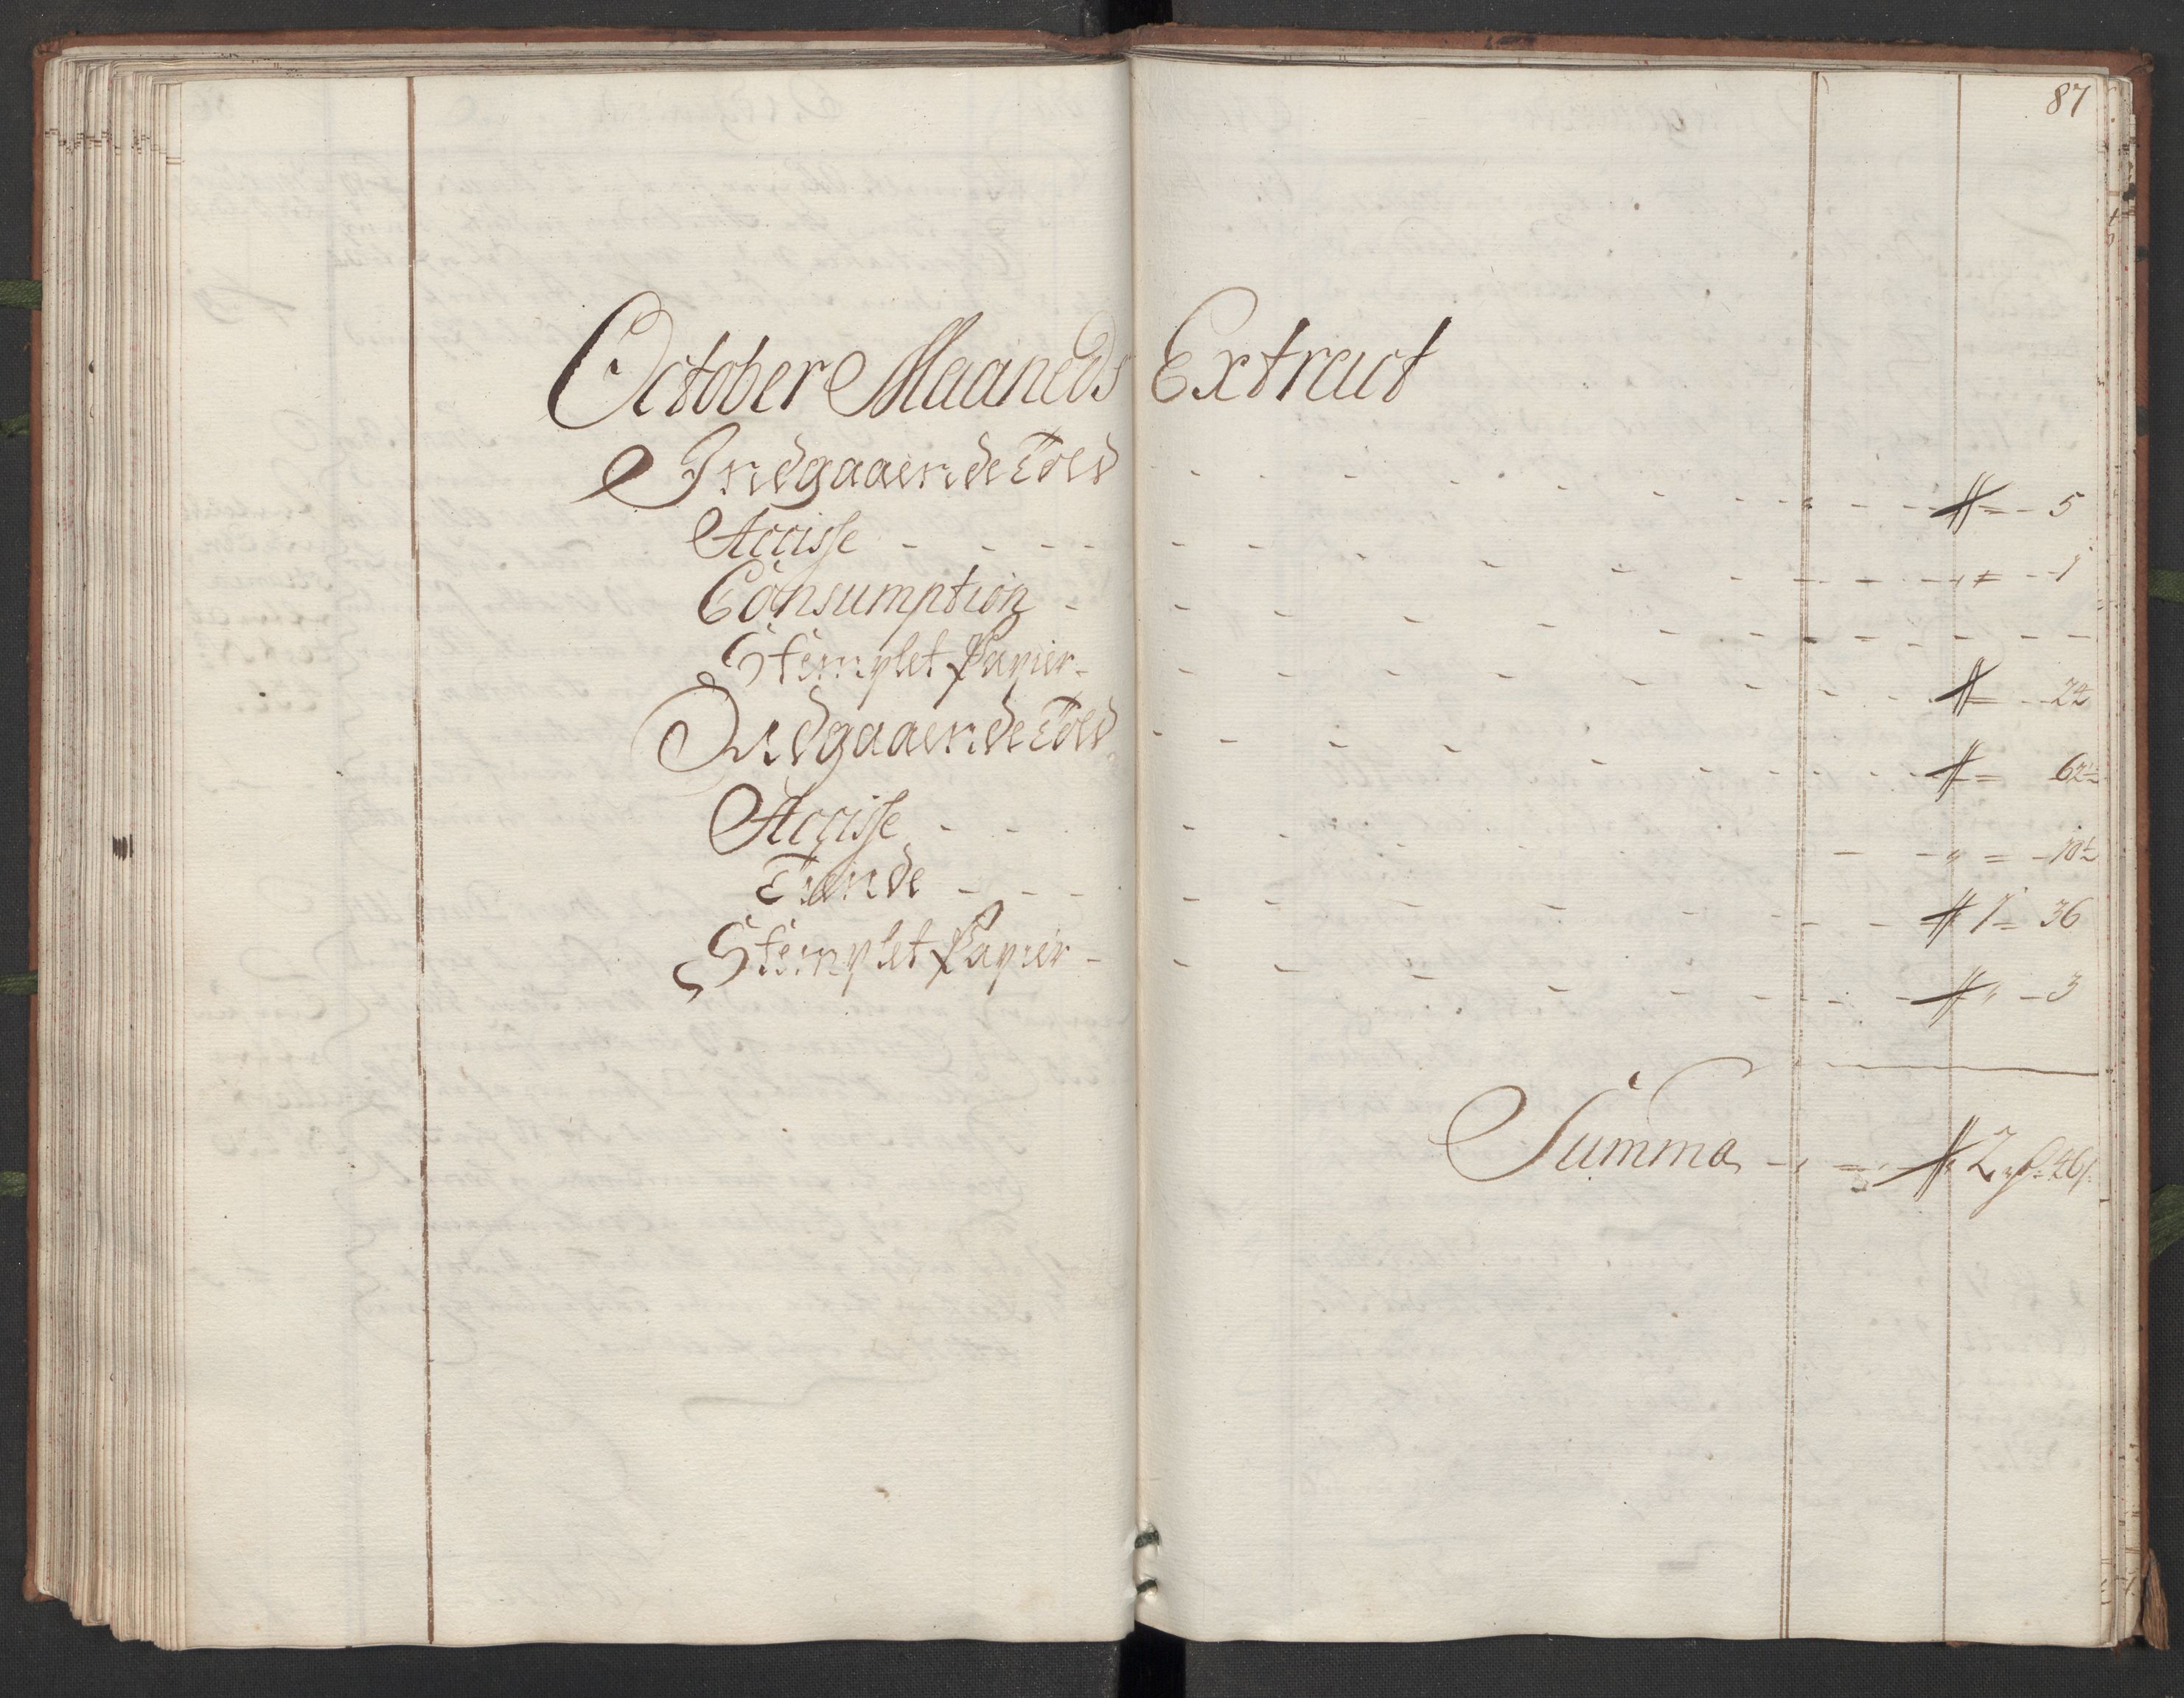 87
October Maaneds Extract
Indgaaende Told - - - - - - - 5
Accisse - - - - - - - " = - 1
Consumption - - - - - - - -
Stemplet Papier - - - - - - - 24
Udgaaende Told - - - - - - = 62½
Accisse - - - - - - " = - 10½
Tiende - - - - - - - 1 = 36
Stemplet Papier - - - - - - - " - 3
Summa - - 2 rd 46 s